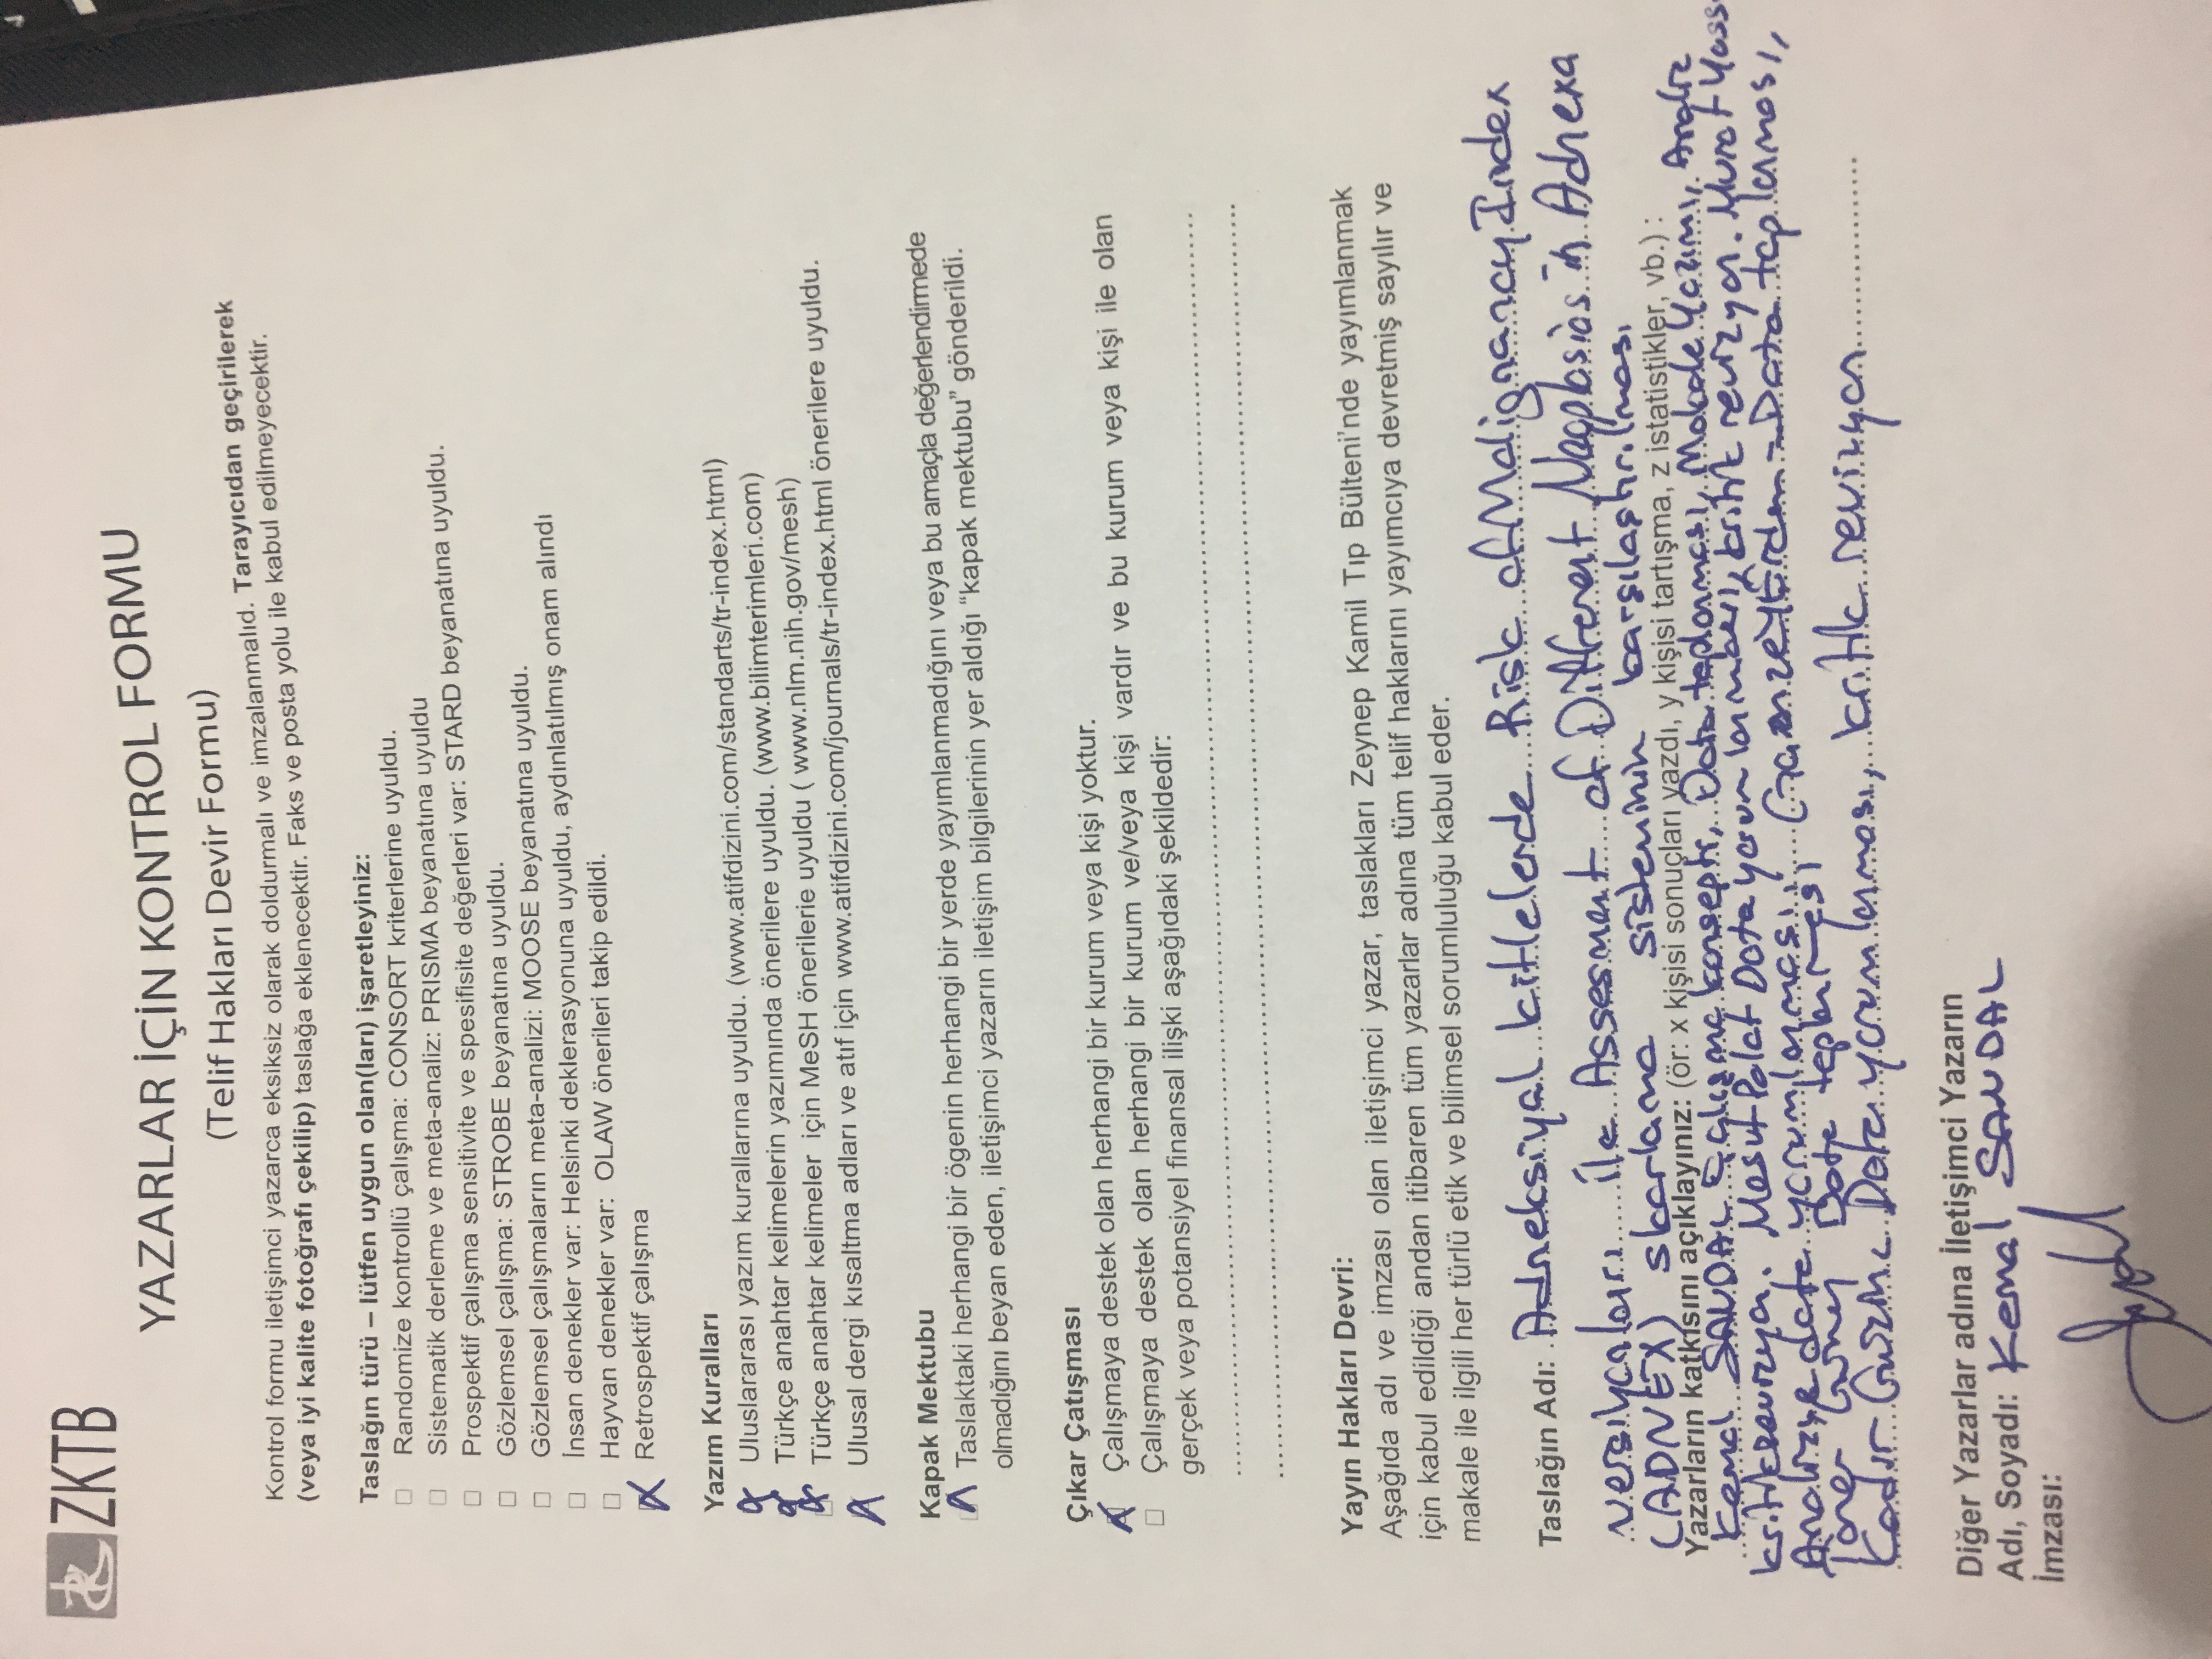 ZKTB
YAZARLAR İÇİN KONTROL FORMU
(Telif Hakları Devir Formu)
Kontrol formu iletişimci yazarca eksiksiz olarak doldurmalı ve imzalanmalıd. Tarayıcıdan geçirilerek
(veya iyi kalite fotoğrafı çekilip) taslağa eklenecektir. Faks ve posta yolu ile kabul edilmeyecektir.
Taslağın türü – lütfen uygun olan(ları) işaretleyiniz:
☐ Randomize kontrollü çalışma: CONSORT kriterlerine uyuldu.
☐ Sistematik derleme ve meta-analiz: PRISMA beyanatına uyuldu
☐ Prospektif çalışma sensitivite ve spesifisite değerleri var: STARD beyanatına uyuldu.
☐ Gözlemsel çalışma: STROBE beyanatına uyuldu.
☐ Gözlemsel çalışmaların meta-analizi: MOOSE beyanatına uyuldu.
☐ İnsan denekler var: Helsinki deklerasyonuna uyuldu, aydınlatılmış onam alındı
☐ Hayvan denekler var: OLAW önerileri takip edildi.
☒ Retrospektif çalışma
Yazım Kuralları
☒ Uluslararası yazım kurallarına uyuldu. (www.atifdizini.com/standarts/tr-index.html)
☒ Türkçe anahtar kelimelerin yazımında önerilere uyuldu. (www.bilimterimleri.com)
☒ Türkçe anahtar kelimeler için MeSH önerilerie uyuldu ( www.nlm.nih.gov/mesh)
☒ Ulusal dergi kısaltma adları ve atıf için www.atifdizini.com/journals/tr-index.html önerilere uyuldu.
Kapak Mektubu
☒ Taslaktaki herhangi bir ögenin herhangi bir yerde yayımlanmadığını veya bu amaçla değerlendirmede
olmadığını beyan eden, iletişimci yazarın iletişim bilgilerinin yer aldığı “kapak mektubu” gönderildi.
Çıkar Çatışması
☒ Çalışmaya destek olan herhangi bir kurum veya kişi yoktur.
☐ Çalışmaya destek olan herhangi bir kurum ve/veya kişi vardır ve bu kurum veya kişi ile olan
gerçek veya potansiyel finansal ilişki aşağıdaki şekildedir:
Yayın Hakları Devri:
Aşağıda adı ve imzası olan iletişimci yazar, taslakları Zeynep Kamil Tıp Bülteni’nde yayımlanmak
için kabul edildiği andan itibaren tüm yazarlar adına tüm telif haklarını yayımcıya devretmiş sayılır ve
makale ile ilgili her türlü etik ve bilimsel sorumluluğu kabul eder.
Taslağın Adı: Adneksiyal kitlelerde Risk of Malignancy Index
versiyonları ile Assesment of Different Neoplasias in Adnexa
(ADNEX) skorlama sisteminin karşılaştırılması
Yazarların katkısını açıklayınız: (ör: x kişisi sonuçları yazdı, y kişisi tartışma, z istatistikler, vb.) :
Kemal SANDAL Çalışma konsepti, Data toplanması, Makale Yazımı, Analiz
kritik revizyon. Mesut Polat Data yorumlanması, kritik revizyon. Murat
Analiz, data yorumlanması, Data toplanması,
Taner Data
Kadir Data yorumlanması, kritik revizyon
Diğer Yazarlar adına İletişimci Yazarın
Adı, Soyadı: Kemal SANDAL
İmzası: